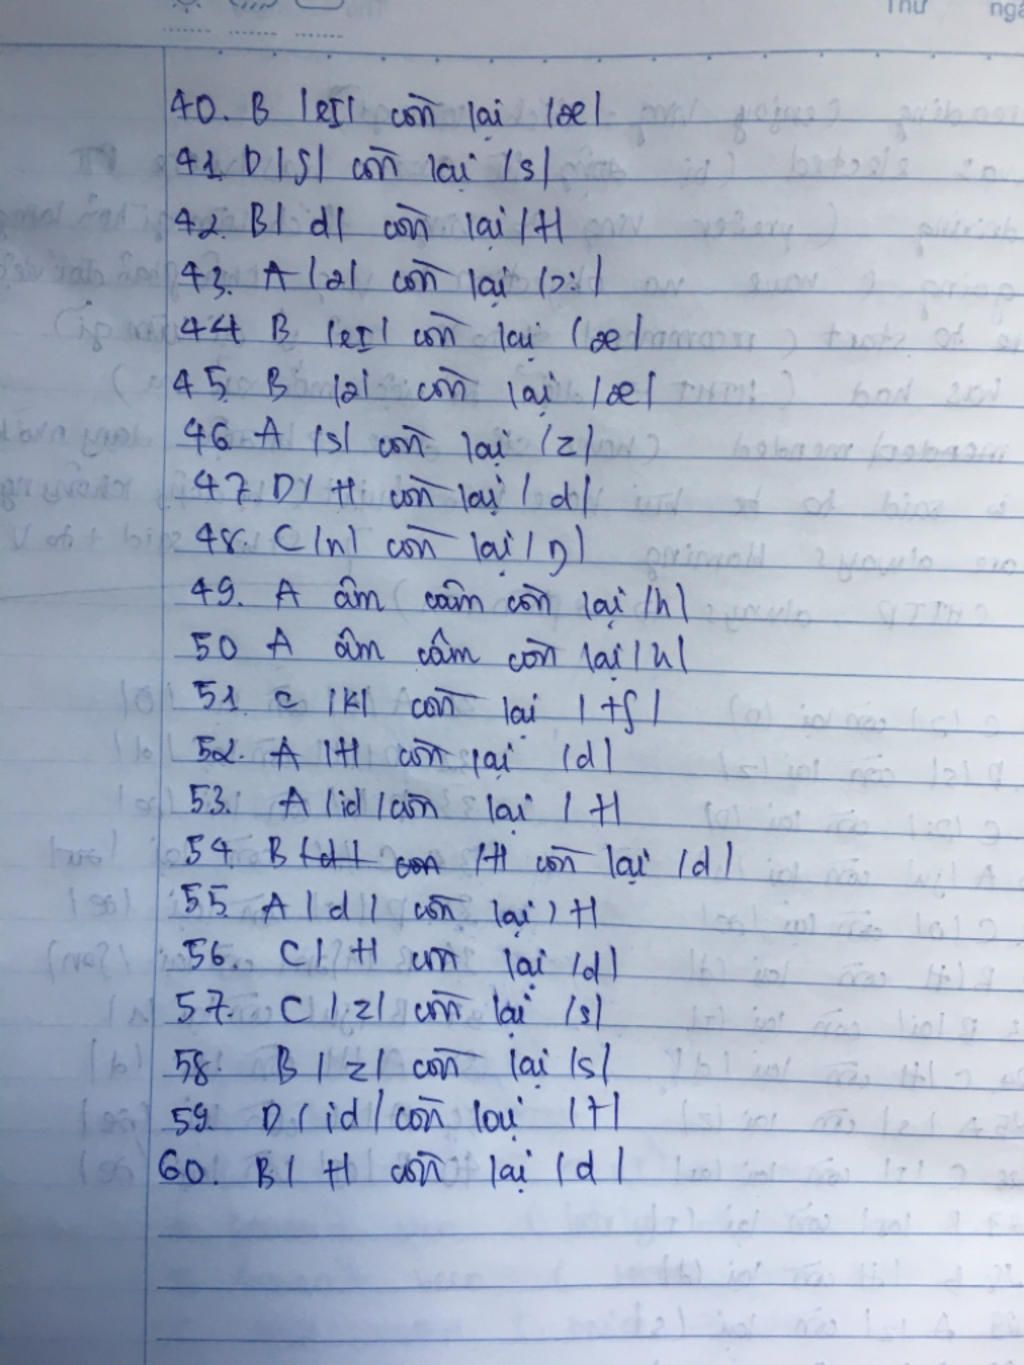 Thứ
40. B /eI/ còn lại /æ/
41. D /ʃ/ còn lại /s/
42. B / d/ còn lại /t/
43. A /ə/ còn lại /ɔ:/
44 B /eI/ còn lại /æ/
45. B /ə/ còn lại /æ/
46. A /s/ còn lại /z/
47. D/ t/ còn lại / d/
48. C /n/ còn lại / ŋ/
49. A âm câm còn lại /h/
50 A âm câm còn lại /h/
51. C /k/ còn lại / tʃ /
52. A /t/ còn lại /d/
53. A /id / còn lại / t/
54. B /d/ con /t/ còn lại /d/
55. A / d / còn lại / t/
56. C / t/ còn lại /d/
57. C / z/ còn lại /s/
58. B / z/ còn lại /s/
59. D / id / còn lại /t/
60. B / t/ còn lại /d /